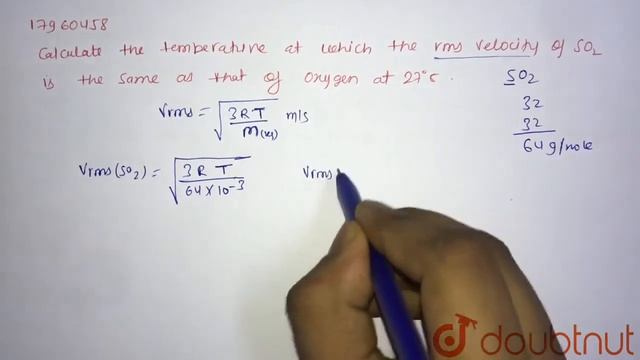 17960458
Calculate the temperature at which the rms velocity of SO2
is the same as that of oxygen at 27°c.
SO2
32
32
64 g/mole
Vrms = √3RT/M(kg) m/s
Vrms (SO2) = √3RT/64×10⁻³
Vrms
doubtnut